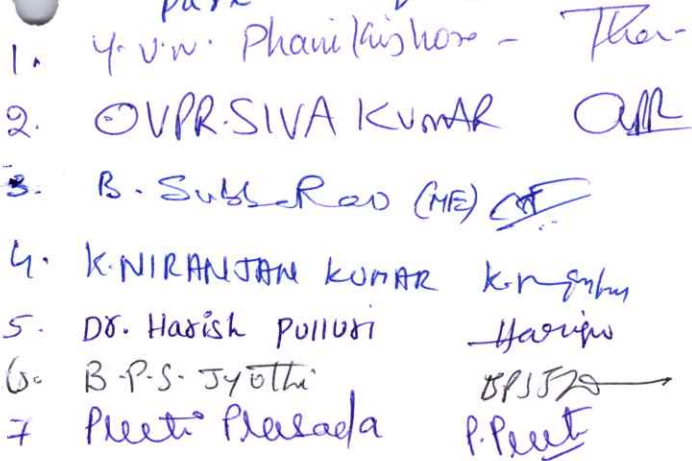 1. Y.V.N. Phani Kishore -
2. OVPR.SIVA KUMAR
3. B. Subba Rao (ME)
4. K.NIRANJAN KUMAR
5. Dr. Harish Pulluri Harish
6. B.P.S. Jyothi
7 Preeti Prasada P.Preeti